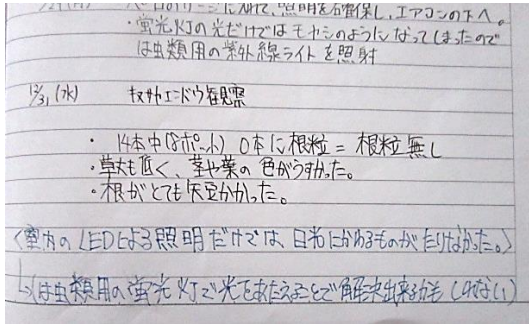 ベージのリーンに入れて、照明を確保し、エアコンの下へ。
・蛍光灯の光だけではモヤシのようになってしまったので
は虫類用の紫外線ライトを照射
12/31(水) キヌサヤエンドウ観察
・14本中(8ポット) 0本に根粒=根粒無し
・草丈も低く、茎や葉の色がうすかった。
・根がとても短かかった。
〈室内のLEDによる照明だけでは、日光にかわるものがたりなかった。〉
↳(は虫類用の蛍光灯で光をあたえることで解決出来るかもしれない)